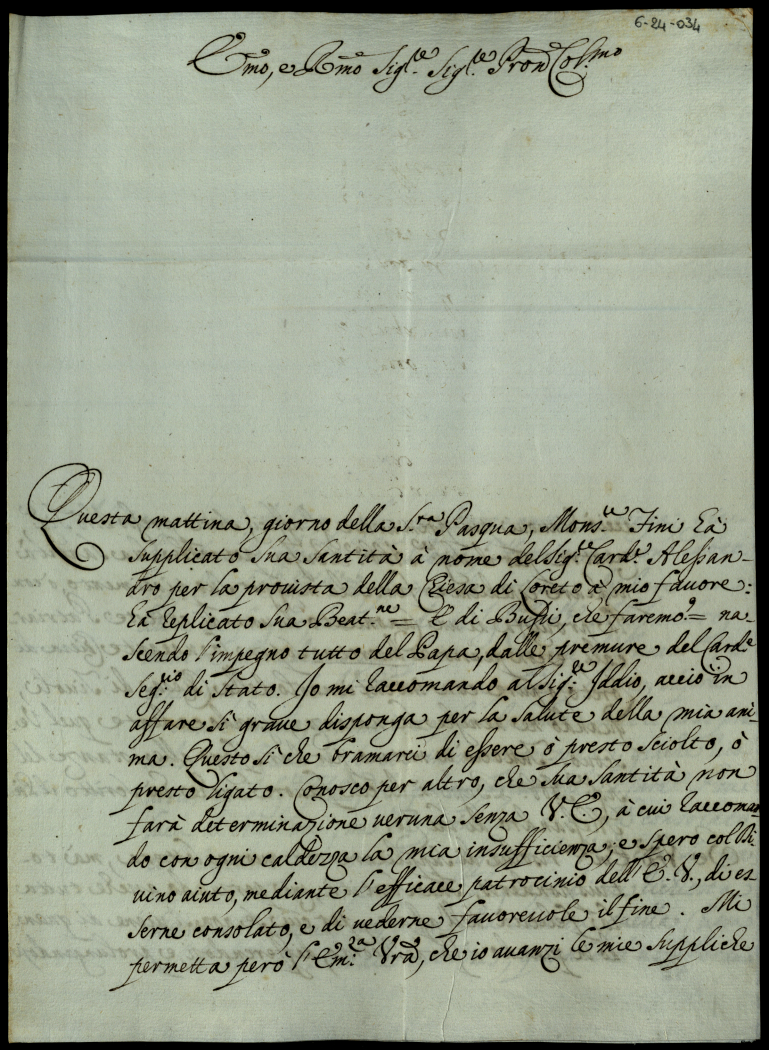 6-24-034
Emo, e Rmo Sig.re Sig.re Pron Col.mo
Questa mattina, giorno della S.ra Pasqua, Mons.re Fini hà
supplicato Sua Santità à nome del Sig.re Card.e Alessan-
dro per la provista della Chiesa di Loreto à mio favore:
hà replicato Sua Beat.ne = E di Bussi, che faremo? = na-
scendo l'impegno tutto del Papa, dalle premure del Card.e
Seg.rio di Stato. Io mi raccomando al Sig.re Iddio, acciò in
affare sì grave disponga per la salute della mia ani-
ma. Questo sì che bramarei di essere ò presto sciolto, ò
presto ligato. Conosco per altro, che Sua Santità non
farà determinazione veruna senza V. E., à cui raccoman-
do con ogni caldezza la mia insufficienza, e spero col Di-
vino aiuto, mediante l'efficace patrocinio dell'E. V., di es
serne consolato, e di vederne favorevole il fine. Mi
permetta però l'Em.za Vra, che io avanzi le mie suppliche